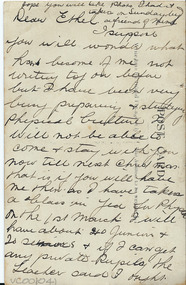 hope you will like these I had it
taken in Sunday
Dear Ethel a friend of mine
I suppose
you will wonder what
has become of me not
writing to you before
but I have been very
busy preparing & studying
Physical Culture I
will not be able to
come & stay with you
now till next Christmas
that is if you will have
me then as I have taken
a class in for Phys
on the 1st March I will
have about 20 Juniors &
20 & if I can get
any private Pupils the
teacher said I ought
POST CARD
VC001041